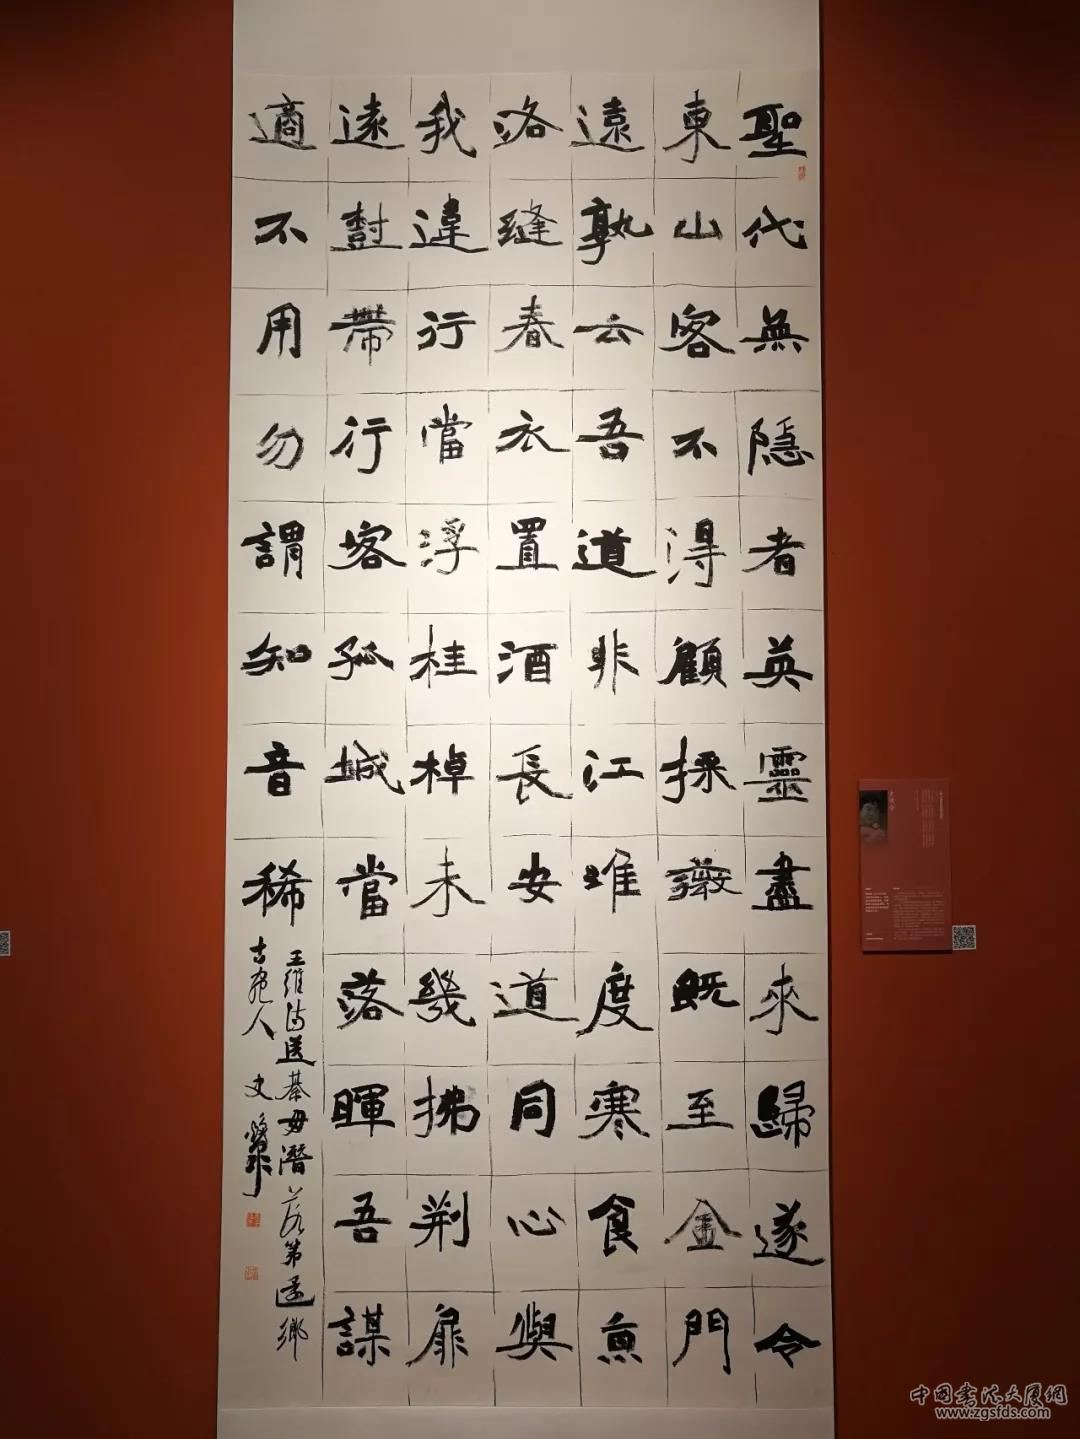 聖代無隱者英靈盡來歸遂令
東山客不得顧採薇既至金門
遠孰云吾道非江淮度寒食京
洛縫春衣置酒長安道同心與
我違行當浮桂棹未幾拂荊扉
遠樹帶行客孤城當落暉吾謀
適不用勿謂知音稀
王維詩送綦毋潛落第還鄉
古宛人 史
中國書法大廈網
www.zgsfds.com